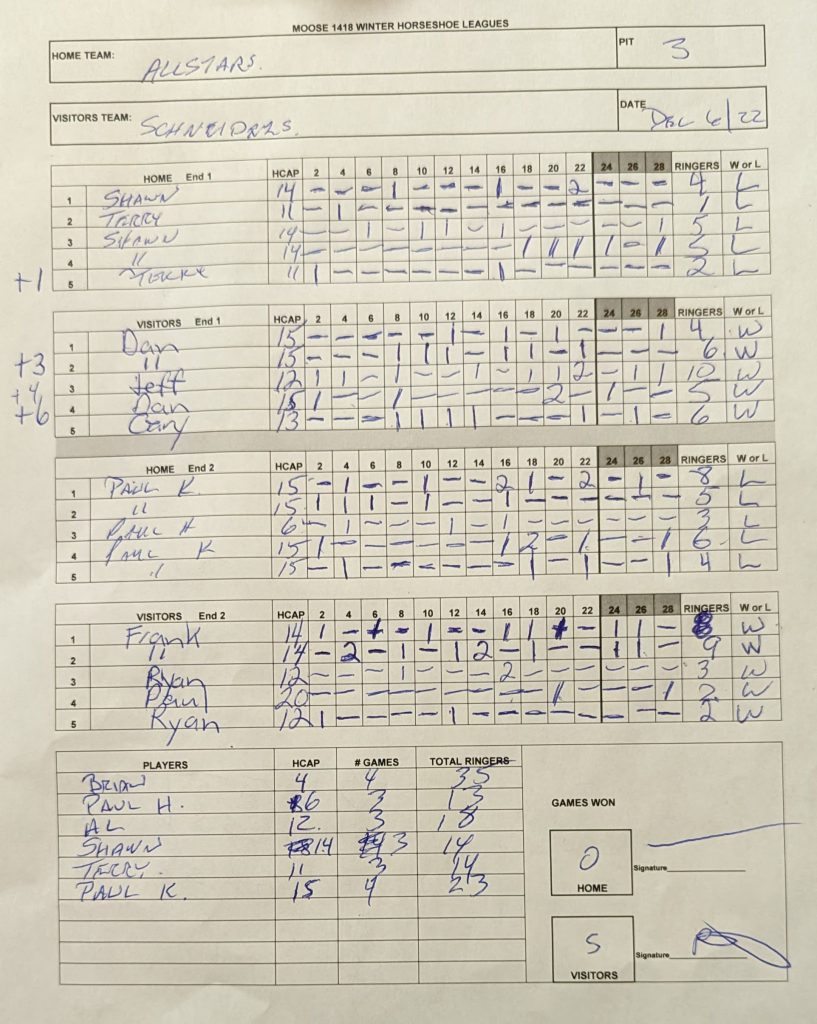 MOOSE 1418 WINTER HORSESHOE LEAGUES
HOME TEAM: ALLSTARS. PIT 3
VISITORS TEAM: SCHNEIDRES. DATE DEC 6/22
HOME End 1 HCAP 2 4 6 8 10 12 14 16 18 20 22 24 26 28 RINGERS W or L
1 SHAWN 14 - - - 1 - - - 1 - - 2 - - - 4 L
2 TERRY 11 - 1 - - - - - - - - - - - - 1 L
3 SHAWN 14 - - 1 - 1 1 - 1 - - - - - 1 5 L
4 " 14 - - - - - - - - 1 1 1 1 - 1 5 L
+1 5 TERRY 11 1 - - - - - - 1 - - - - - - 2 L
VISITORS End 1 HCAP 2 4 6 8 10 12 14 16 18 20 22 24 26 28 RINGERS W or L
1 Dan 15 - - - - - 1 - 1 - 1 - - - 1 4 W
+3 2 " 15 - - - 1 1 1 - 1 1 - 1 - - - 6 W
+4 3 Jeff 12 1 1 - 1 - - 1 - 1 1 2 - 1 1 10 W
+6 4 Dan 15 1 - - 1 - - - - - 2 - 1 - - 5 W
5 Cary 13 - - - 1 1 1 1 - - - 1 - 1 - 6 W
HOME End 2 HCAP 2 4 6 8 10 12 14 16 18 20 22 24 26 28 RINGERS W or L
1 PAUL K. 15 - 1 - - 1 - - 2 1 - 2 - 1 - 8 L
2 " 15 1 1 1 - 1 - - 1 - - - - - - 5 L
3 PAUL H 6 - 1 - - - 1 - 1 - - - - - - 3 L
4 PAUL K 15 1 - - - - - - 1 2 - 1 - - 1 6 L
5 " 15 - 1 - - - - - - 1 - 1 - - 1 4 L
VISITORS End 2 HCAP 2 4 6 8 10 12 14 16 18 20 22 24 26 28 RINGERS W or L
1 Frank 14 1 - - 1 - - 1 1 - 1 1 - 8 W
2 " 14 - 2 - 1 - 1 2 - 1 - - 1 1 - 9 W
3 Ryan 12 - - - 1 - - - 2 - - - - - - 3 W
4 Paul 20 - - - - - - - - - 1 - - - 1 2 W
5 Ryan 12 1 - - - - 1 - - - - - - - - 2 W
PLAYERS HCAP # GAMES TOTAL RINGERS
BRIAN 4 4 35
PAUL H. 6 3 13
AL 12. 3 18
SHAWN 14 3 14
TERRY. 11 3 14
PAUL K. 15 4 23
GAMES WON
0 HOME Signature
5 VISITORS Signature